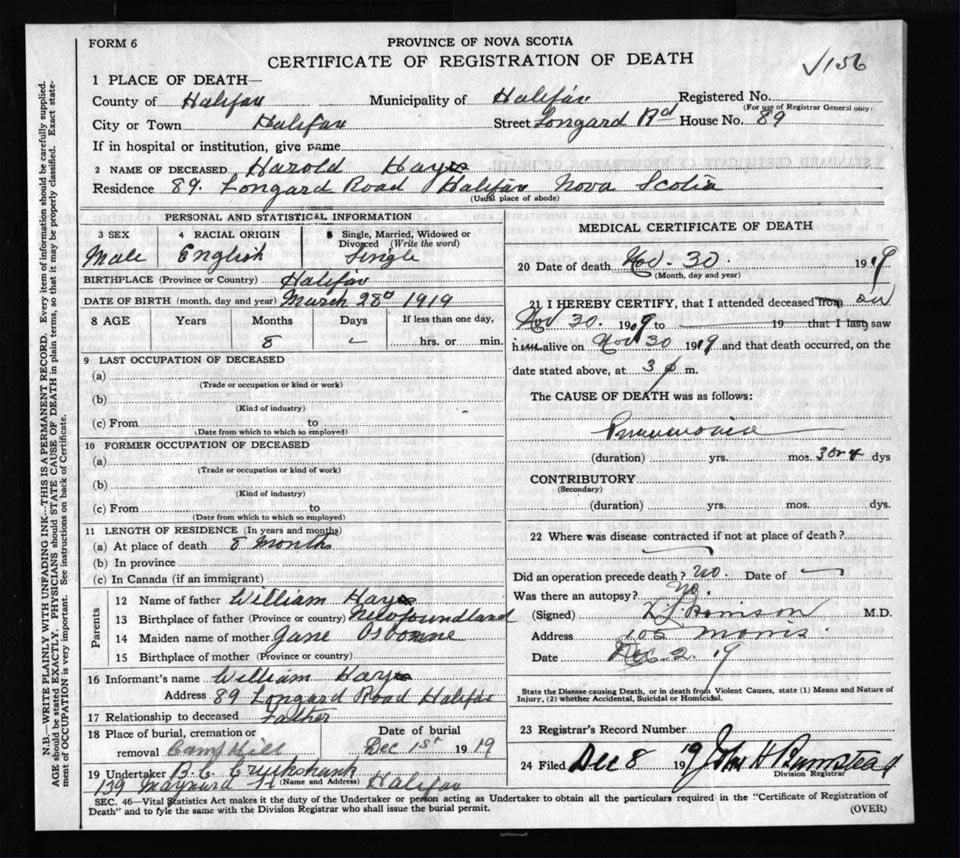 FORM 6
PROVINCE OF NOVA SCOTIA
CERTIFICATE OF REGISTRATION OF DEATH
√156
1 PLACE OF DEATH—
County of Halifax Municipality of Halifax Registered No.
(For use of Registrar General only)
City or Town Halifax Street Longard Rd House No. 89
If in hospital or institution, give name
2 NAME OF DECEASED Harold Hayes
Residence 89. Longard Road Halifax Nova Scotia
(Usual place of abode)
PERSONAL AND STATISTICAL INFORMATION
3 SEX 4 RACIAL ORIGIN 5 Single, Married, Widowed or Divorced (Write the word)
Male English Single
BIRTHPLACE (Province or Country) Halifax
DATE OF BIRTH (month, day and year) March 28d 1919
8 AGE Years Months Days If less than one day,
8 – hrs. or min.
9 LAST OCCUPATION OF DECEASED
(a)
(Trade or occupation or kind or work)
(b)
(Kind of industry)
(c) From to
(Date from which to which so employed)
10 FORMER OCCUPATION OF DECEASED
(a)
(Trade or occupation or kind of work)
(b)
(Kind of industry)
(c) From to
(Date from which to which so employed)
11 LENGTH OF RESIDENCE (In years and months)
(a) At place of death 8 Months
(b) In province
(c) In Canada (if an immigrant)
Parents
12 Name of father William Hayes
13 Birthplace of father (Province or country) Newfoundland
14 Maiden name of mother Jane Osborne
15 Birthplace of mother (Province or country)
16 Informant's name William Hayes
Address 89 Longard Road Halifax
17 Relationship to deceased Father
18 Place of burial, cremation or removal Camp Hill
Date of burial Dec 1st 1919
19 Undertaker B.C. Cruikshank
(Name and Address)
139 Maynard St Halifax
MEDICAL CERTIFICATE OF DEATH
20 Date of death Nov. 30 1919
(Month, day and year)
21 I HEREBY CERTIFY, that I attended deceased from on
Nov 30. 1919 to 19 that I last saw
him alive on Nov 30 1919 and that death occurred, on the
date stated above, at 3 p m.
The CAUSE OF DEATH was as follows:
Pneumonia
(duration) yrs. mos. 3 or 4 dys
CONTRIBUTORY
(Secondary)
(duration) yrs. mos. dys.
22 Where was disease contracted if not at place of death?
Did an operation precede death? No. Date of —
Was there an autopsy? No.
(Signed) M.D.
Address 105 Morris.
Date Dec. 2. 19
State the Disease causing Death, or in death from Violent Causes, state (1) Means and Nature of
Injury, (2) whether Accidental, Suicidal or Homicidal.
23 Registrar's Record Number
24 Filed Dec 8 19 Jno H Bumstead
Division Registrar
SEC. 46—Vital Statistics Act makes it the duty of the Undertaker or person acting as Undertaker to obtain all the particulars required in the "Certificate of Registration of
Death" and to fyle the same with the Division Registrar who shall issue the burial permit.
(OVER)
N.B.—WRITE PLAINLY WITH UNFADING INK—THIS IS A PERMANENT RECORD. Every item of information should be carefully supplied.
AGE should be stated EXACTLY. PHYSICIANS should STATE CAUSE OF DEATH in plain terms, so that it may be properly classified. Exact state-
ment of OCCUPATION is very important. See instructions on back of Certificate.